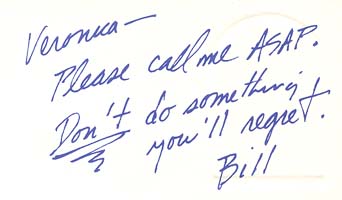 Veronica—
Please call me ASAP.
Don't do something
you'll regret.
Bill